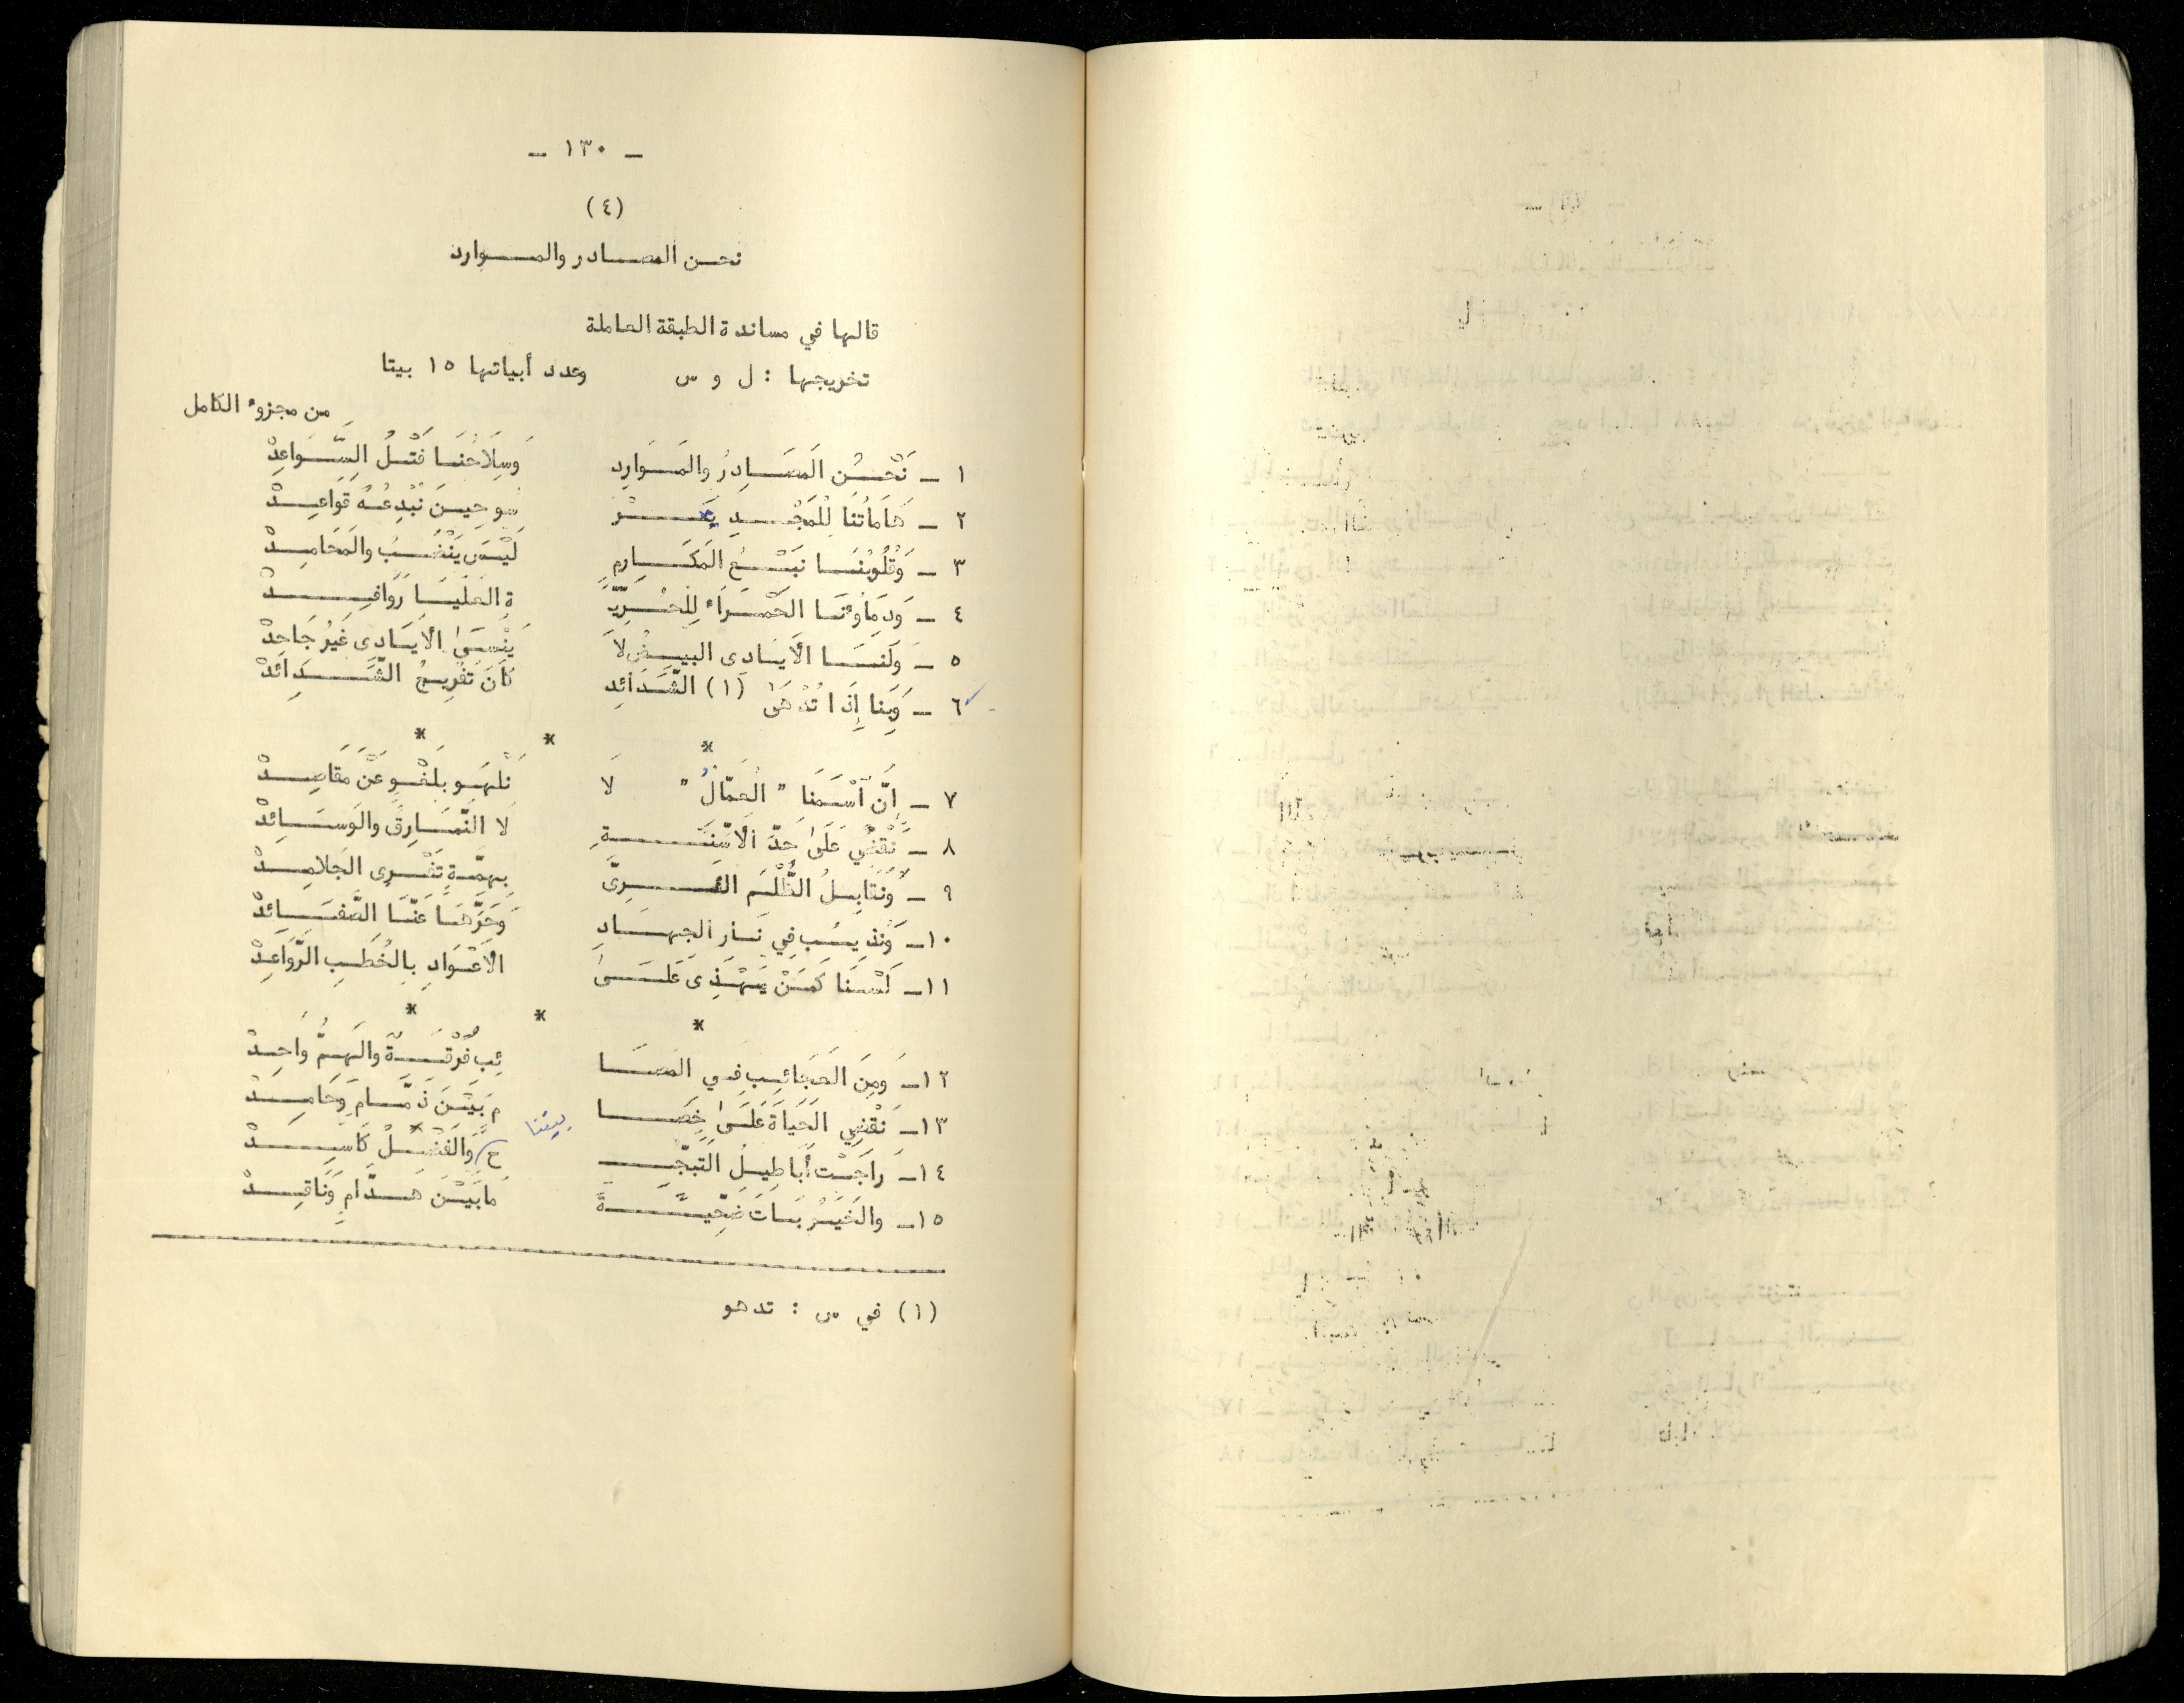 - ١٣٠ -
(٤)
نحن المصادر والموارد
قالها في مساندة الطبقة العاملة
تخريجها : ل و س وعدد أبياتها ١٥ بيتا
من مجزوء الكامل
١ - نَحْنُ المَصَادِرُ والمَوَارِد وَسِلَاحُنَا فَتْلُ السَّوَاعِدْ
٢ - هَامَاتُنَا لِلْمَجْدِ تَرْ سو حِينَ نُبْدِعُهُ قَوَاعِدْ
٣ - وَقُلُوبُنَا نَبْعُ المَكَارِمِ لَيْسَ يَنْضَبُ والمَحَامِدْ
٤ - وَدِمَاؤُنَا الحَمْرَاءُ لِلْحُرِّيَّ ةِ العُلْيَا رَوَافِدْ
٥ - وَلَنَا الأَيَادِى البِيضُ لاَ يَنْسَىٰ الأَيَادِى غَيْرُ جَاحِدْ
٦ - وَبِنا إِذَا تُدْهَىٰ (١) الشَّدَائِد كَانَ تَفْرِيجُ الشَّدَائِدْ
* * *
٧ - إنَّ اسْمَنَا " العُمَّالُ " لَا نَلْهُو بِلَغْوٍ عَنْ مَقَاصِدْ
٨ - نَقْضِي عَلَىٰ حَدِّ الأَسِنَّةِ لَا النَّمَارِقِ والوَسَائِدْ
٩ - وَنُقَابِلُ الظُّلْمَ العَرِىَّ بِهِمَّةٍ تَفْرِى الجَلَامِدْ
١٠ - وَنُذِيبُ فِي نَارِ الجِهَادِ وَحَرِّهَا عَنَّا الصَّفَائِدْ
١١ - لَسْنَا كَمَنْ يَهْذِى عَلَىٰ الأَعْوَادِ بِالخُطَبِ الرَّوَاعِدْ
* * *
١٢ - وَمِنَ العَجَائِبِ فِي المَصَا ئِبِ فُرْقَةٌ والهَمُّ وَاحِدْ
١٣ - نَقْضِي الحَيَاةَ عَلَىٰ خِصَا مٍ بَيْنَ ذَمَّامٍ وَحَامِدْ
١٤ - رَاجَتْ أَبَاطِيلُ التَبَجُّ حِ بيننا وَالفَضْلُ كَاسِدْ
١٥ - والخَيْرُ بَاتَ ضَحِيَّةً مَا بَيْنَ هَدَّامٍ وَنَاقِدْ
(١) في س : تدهو